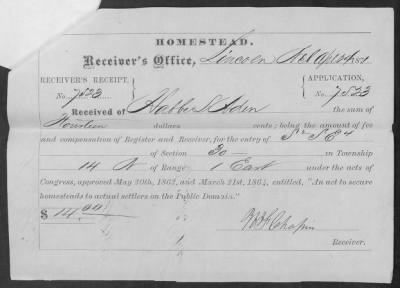 HOMESTEAD.
Receiver's Office, Lincoln
RECEIVER'S RECEIPT, APPLICATION,
No. 7523 No. 7523
Received of Aden the sum of
Fourteen dollars cents; being the amount of fee
and compensation of Register and Receiver, for the entry of
of Section 30 in Township
14 N of Range 1 East under the acts of
Congress, approved May 20th, 1862, and March 21st, 1864, entitled, "An act to secure
homesteads to actual settlers on the Public Domain."
$ 14.00
Chapin
Receiver.